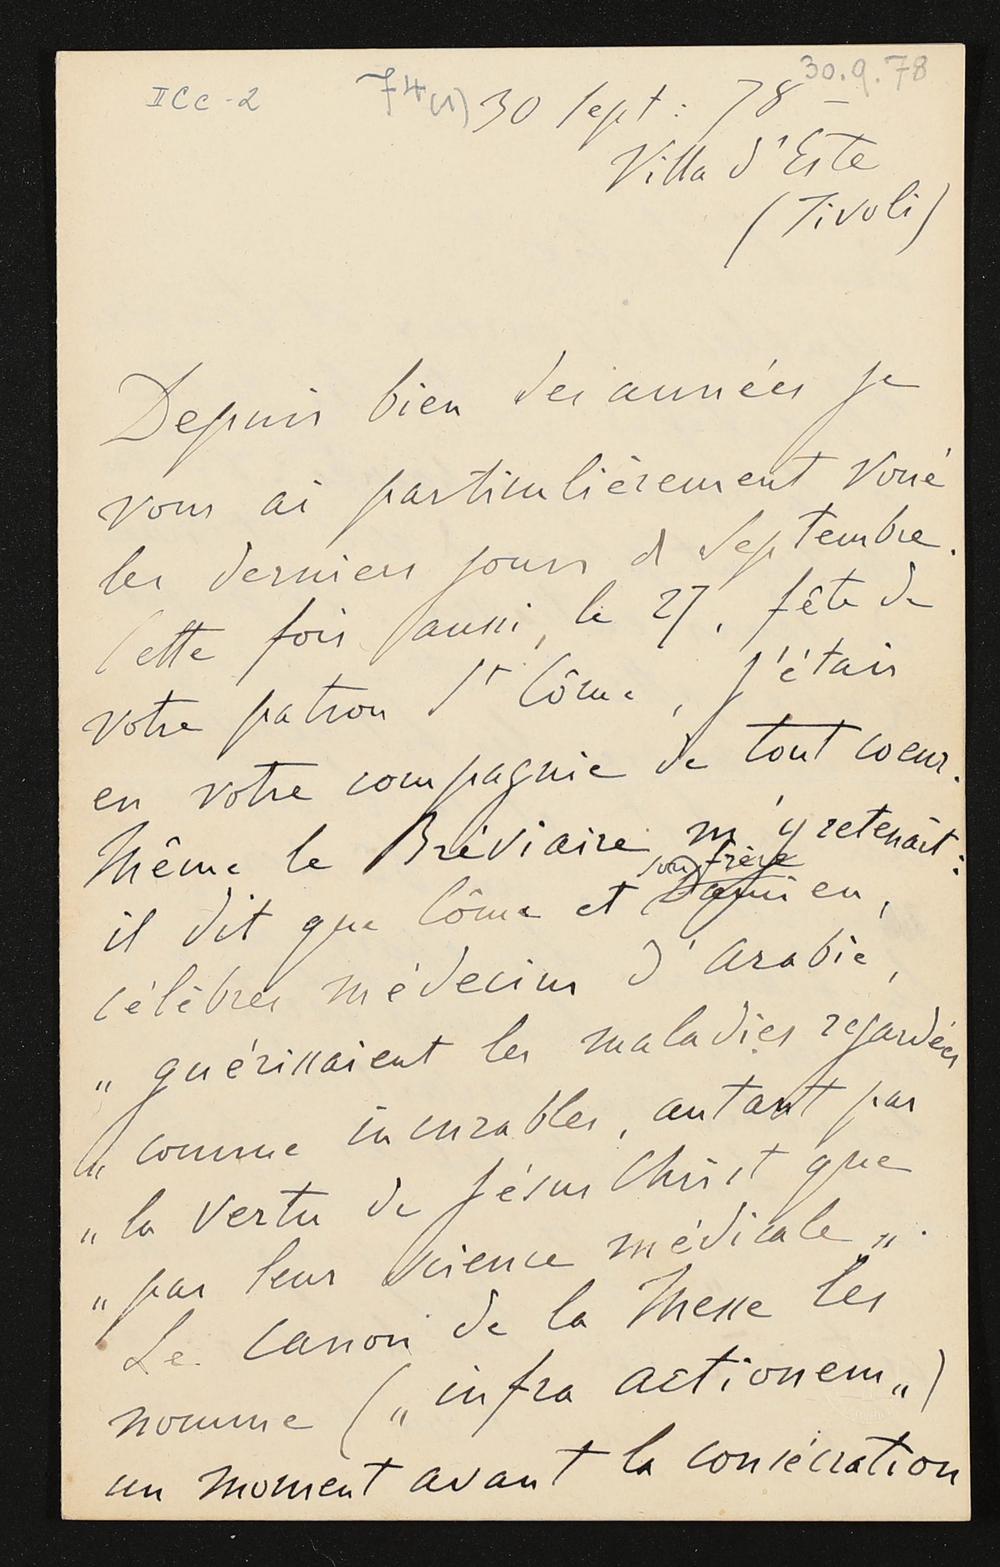 II C c - 2
74(1)
30.9.78
30 Sept: 78 -
Villa d'Este
(Tivoli)
Depuis bien des années je
vous ai particulièrement voué
les derniers jours de Septembre.
Cette fois aussi, le 27, fête de
votre patron St Côme, j'étais
en votre compagnie de tout coeur.
Même le Bréviaire m'y retenait:
son frère
il dit que Côme et Damien,
célèbres médecins d'Arabie,
„ guérissaient les maladies regardées
„ comme incurables, autant par
„ la vertu de Jésus Christ que
„ par leur science médicale „.
Le Canon de la Messe les
nomme („ infra actionem „)
un moment avant la consécration